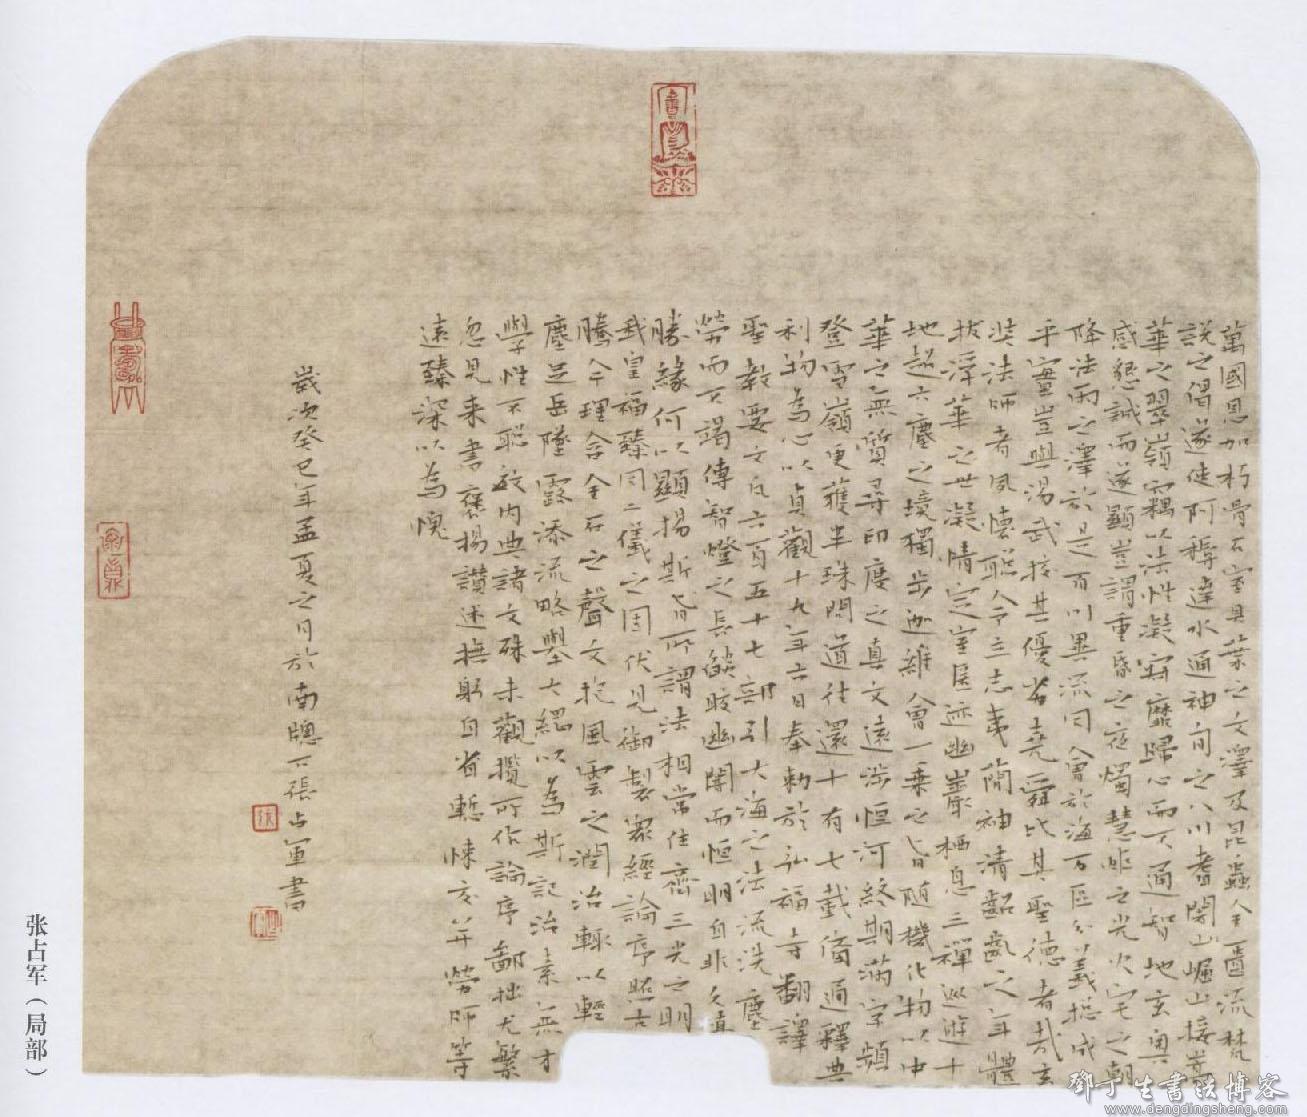 萬國恩加朽骨石室具葉之文澤及昆蟲金匱流梵
說之偈遂使阿耨達水通神甸之八川耆闍山崛山接嵩
華之翠嶺竊以法性凝寂靡歸心而不通智地玄奧
感懇誠而遂顯豈謂重昏之夜燭慧炬之光火宅之朝
降法雨之澤於是百川異流同會於海万區分義揔成
乎實豈與湯武挍其優劣堯舜比其聖德者哉玄
奘法師者夙懷聡令立志夷簡神清齠齓之年體
拔浮華之世凝情定室匿迹幽巖栖息三禪巡遊十
地超六塵之境獨步迦維會一乘之旨随機化物以中
華之無質尋印度之真文遠涉恒河終期滿字頻
登雪嶺更獲半珠問道往還十有七載備通釋典
利物為心以貞觀十九年六日奉勅於弘福寺翻譯
聖教要文凡六百五十七部引大海之法流洗塵
勞而不竭傳智燈之長焰皎幽闇而恒明自非久植
勝緣何以顯揚斯旨所謂法相常住齊三光之明
我皇福臻同二儀之固伏見御製衆經論序照古
騰今理含金石之聲文抱風雲之潤治輒以輕
塵足岳墜露添流略舉大綱以為斯記治素無才
學性不聡敏内典諸文殊未觀攬所作論序鄙拙尤繁
忽見来書襃揚讚述撫躬自省慙悚交并勞師等
遠臻深以為愧
歲次癸巳年孟夏之月於南牕下張占軍書
张占军（局部）
鄧丁生書法博客
www.dengdingsheng.com